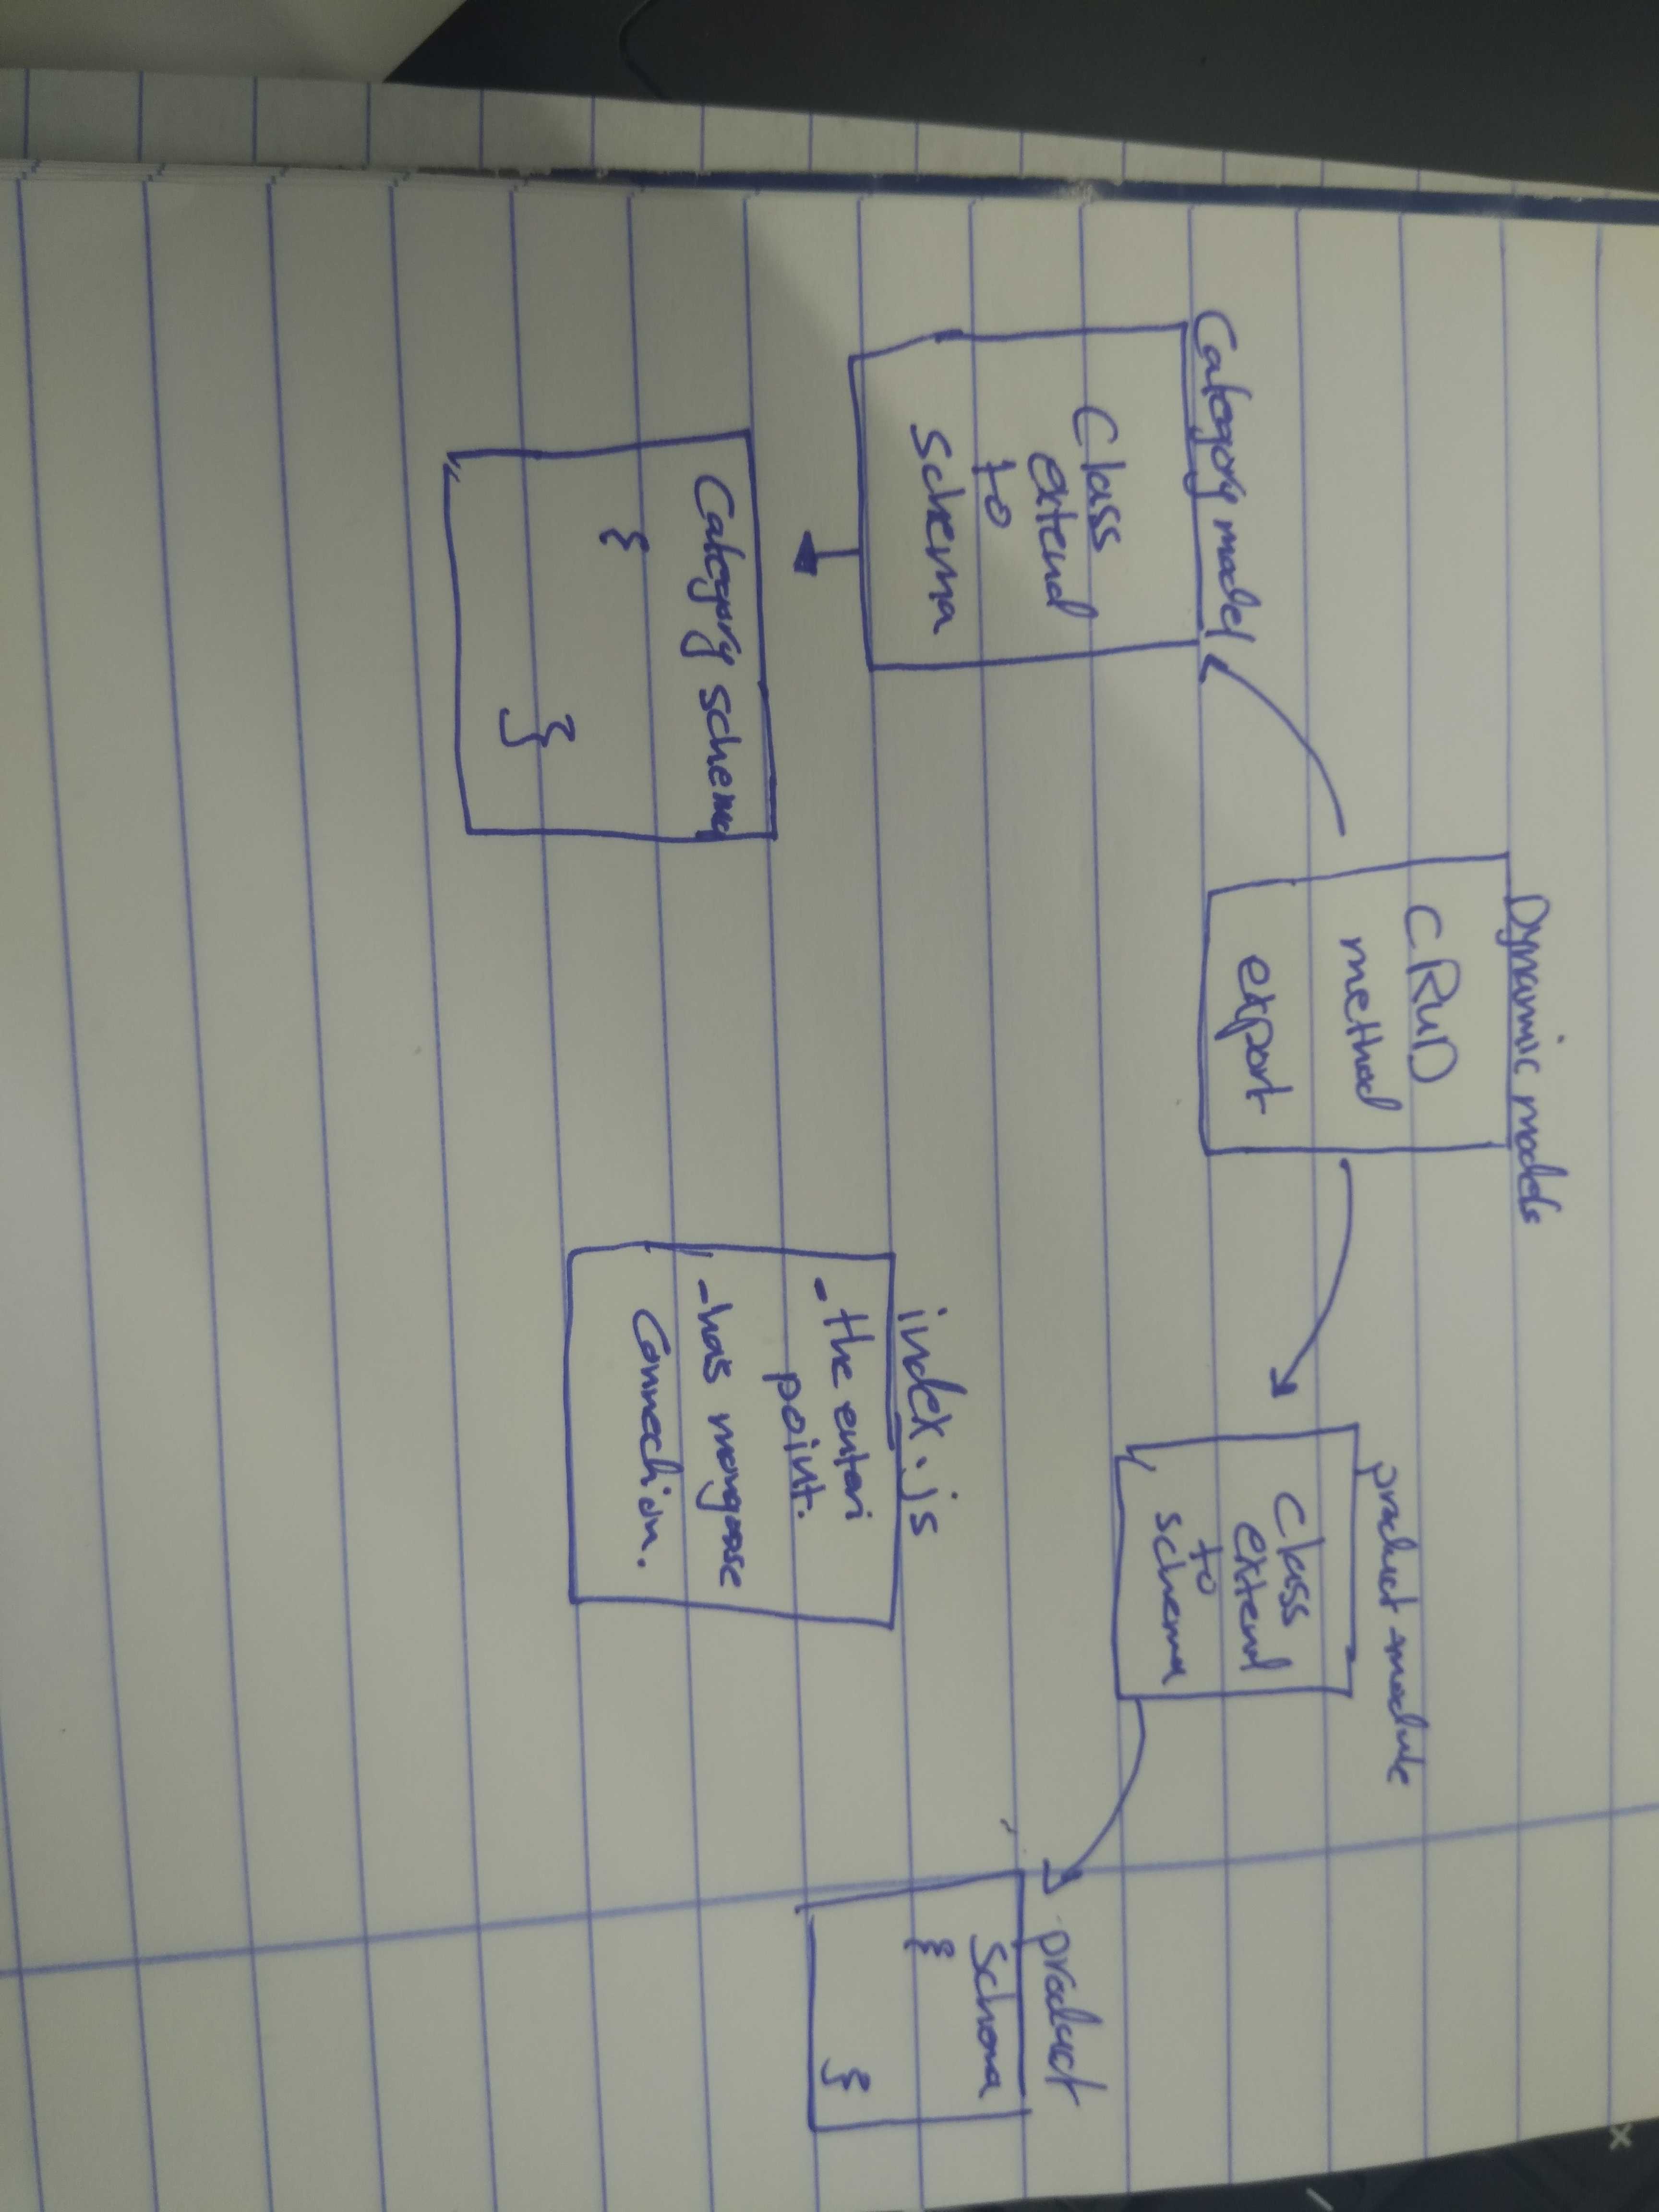 Dynamic models
CRUD
method
export
Category model
Class
extend
to
schema
Category schema
{
}
product module
class
extend
to
schema
product
Schema
{
}
index.js
- the enteri
point.
- has mongoose
Connection.